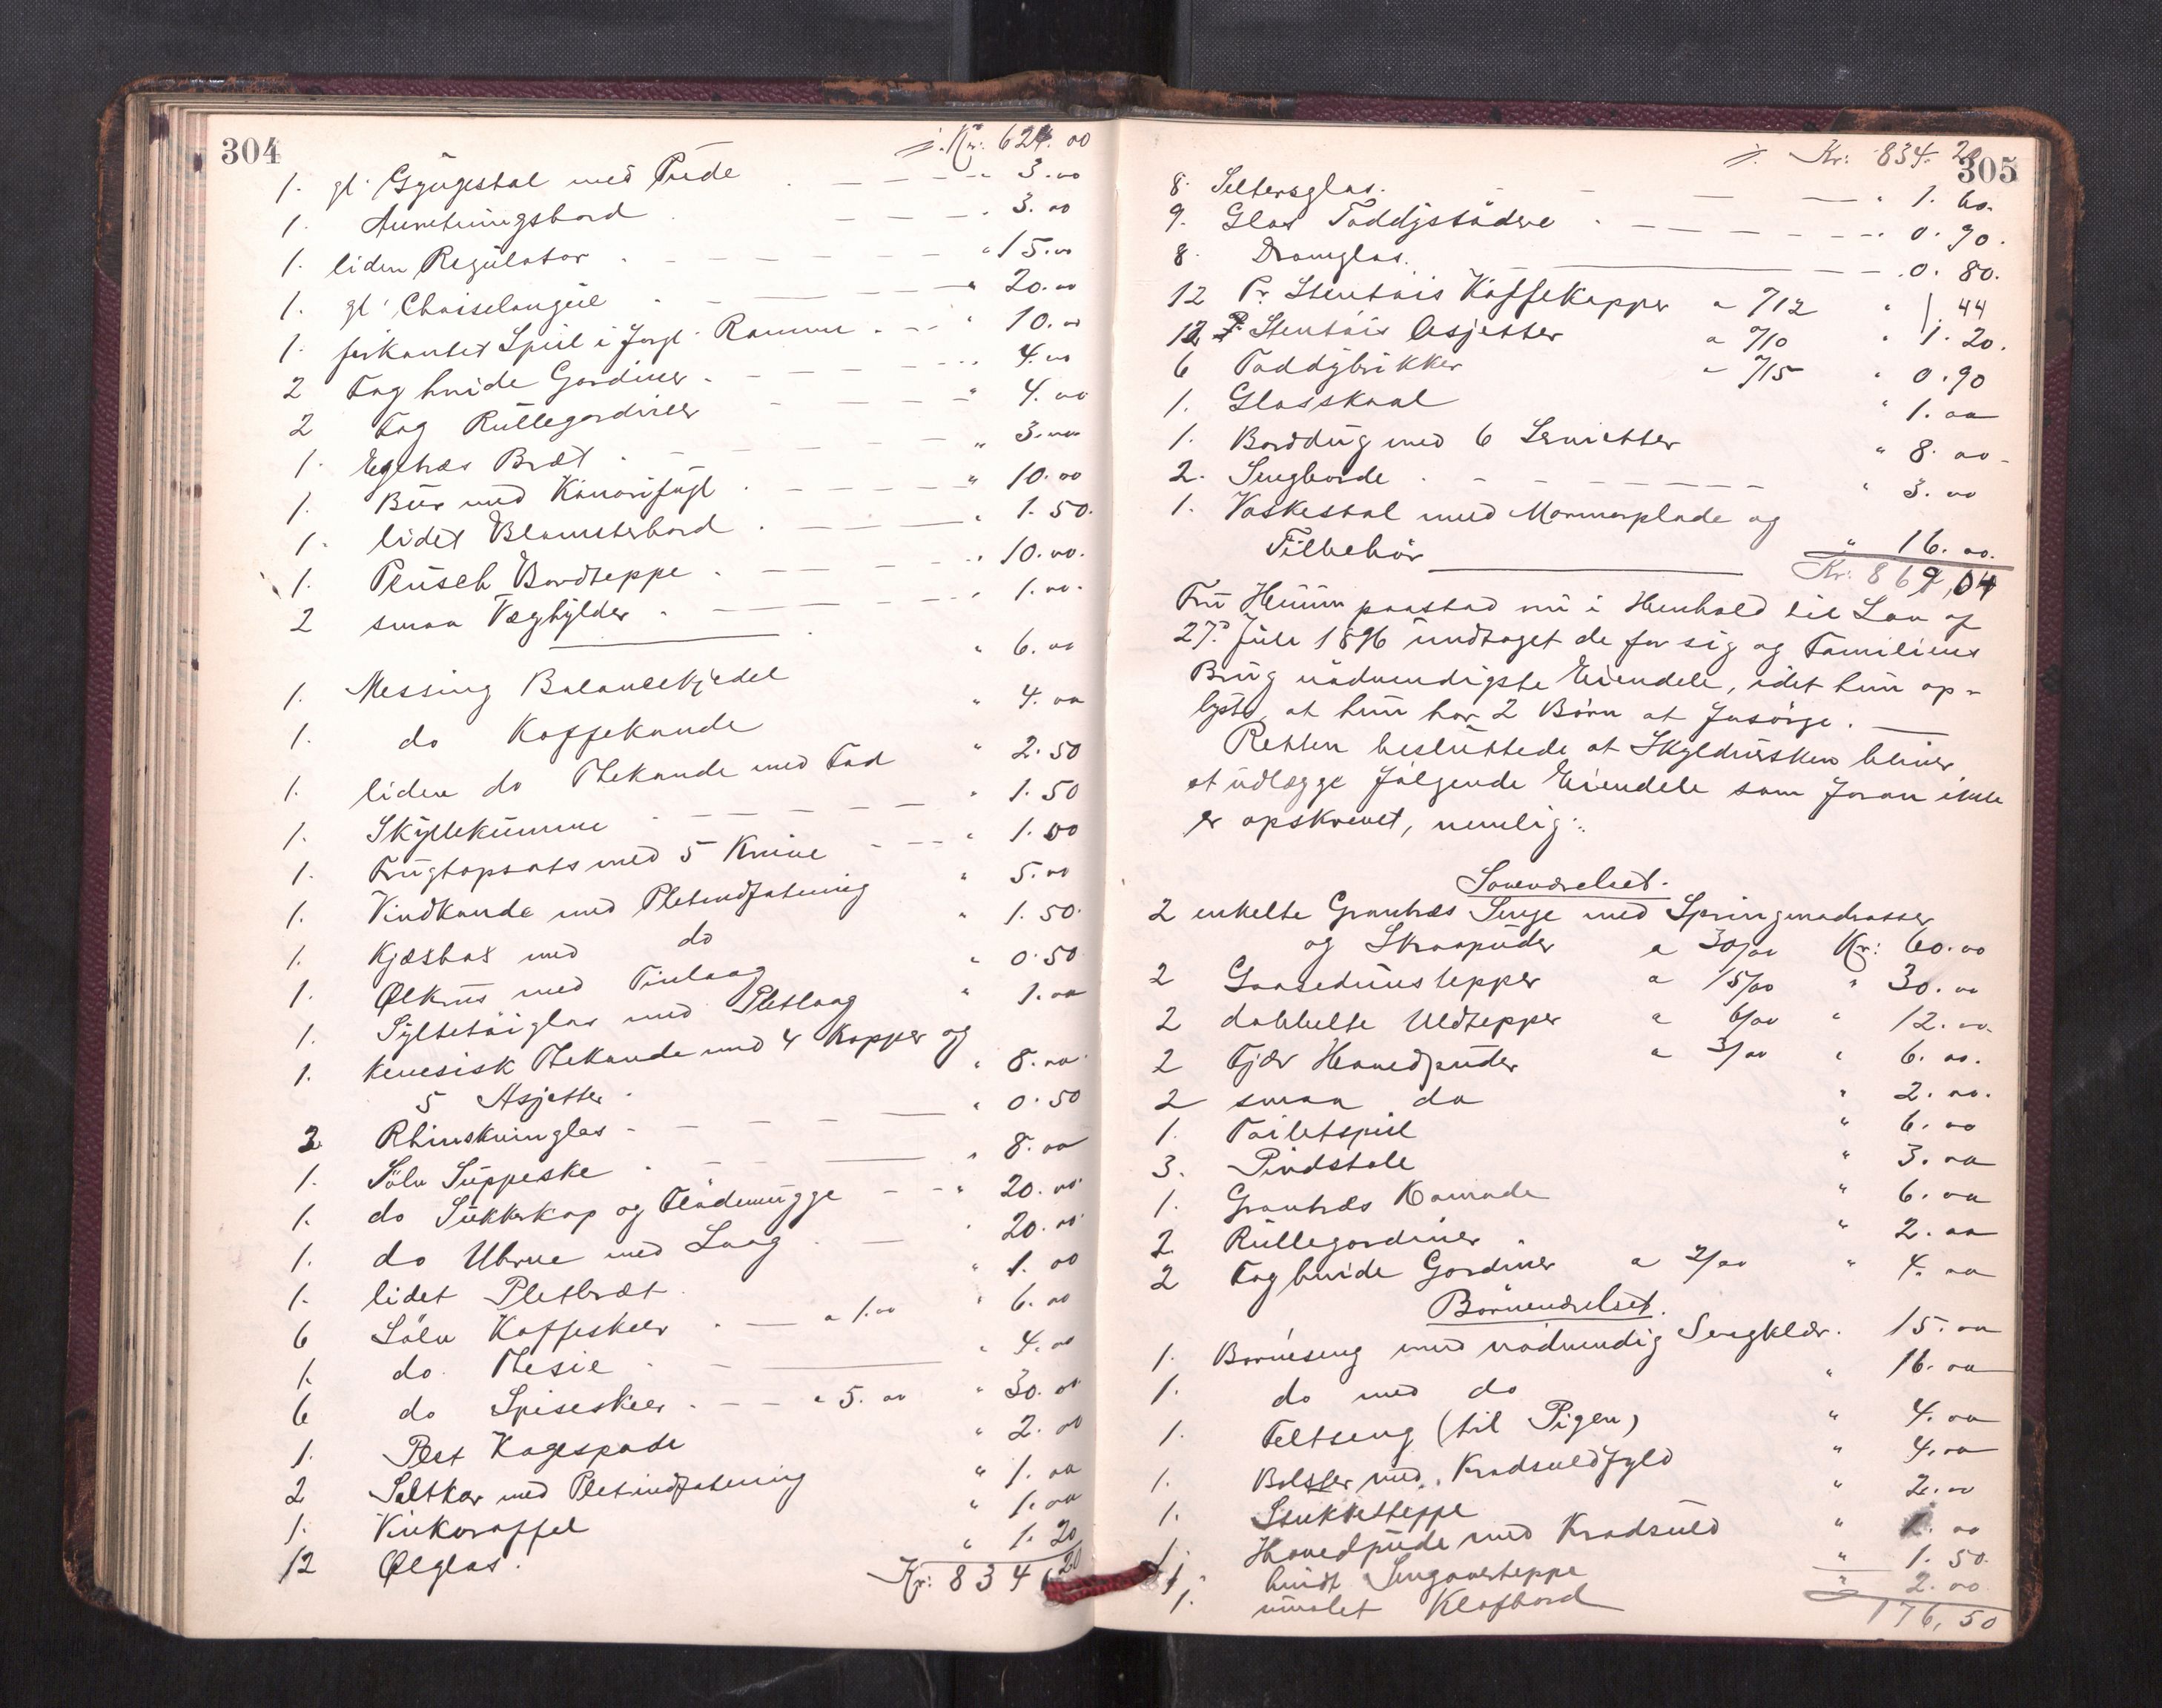 304
Kr: 624.00
1. gl. Gyngestol med Pude " 3.00
1. Anretningsbord " 3.00
1. liden Regulator " 15.00
1. gl. Chaiselongue " 20.00
1. firkantet Speil i forgl. Ramme " 10.00
2 Fag hvide Gardiner " 4.00
2 Fag Rullegardiner " 4.00
1. Egetræs Bræt " 3.00
1. Bur med Kanarifugl " 10.00
1. lidet Blomsterbord " 1.50.
1. Plusch Bordteppe " 10.00.
2 smaa Væghylder " 1.00.
1. Messing Balancekjedel " 6.00
1. do Kaffekande " 4.00
1. liden do Thekande med Fad " 2.50
1. Skyllekumme " 1.50
1. Frugtopsats med 5 Knive " 1.00
1. Vindkande med Pletindfatning " 5.00
1. Kjæxbox med do " 1.50.
1. Ølkrus med Tinlaag " 0.50
1. Syltetøiglas med Pletlaag " 1.00
1. kinesisk Thekande med 4 Kopper og
5 Asjetter. " 8.00
3 Rhinskvinglas " 0.50
1. Sølv Suppeske " 8.00
1. do Sukkerkop og Flødemugge " 20.00
1. do Uhrne med Laag " 20.00
1. lidet Pletbræt " 1.00
6 Sølv Kaffeskeer a 1.00 " 6.00
1. do. Thesie " 4.00
6 do Spiseskeer a 5.00 " 30.00
1. Plet Kagespade " 2.00
2 Saltkar med Pletindfatning " 1.00
1. Vinkaraffel " 1.00
12 Ølglas. " 1.20
Kr: 834 20
305
Kr: 834.20
8. Seltersglas. " 1.60.
9. Glas Toddystødere " 0.90.
8. Dramglas. " 0.80.
12 Pr. Stentøis Kaffekopper a 7/12 " 1.44
12 Stentøis Asjetter a 7/10 " 1.20.
6 Toddybrikker a 7/15 " 0.90
1. Glasskaal " 1.00
1. Borddug med 6 Servietter " 8.00
2. Sengborde " 3.00
1. Vaskestol med Marmorplade og
Tilbehør " 16.00.
Kr: 869,04
Fru Heum paastod nu i Henhold til Lov af
27. Juli 1896 undtaget de for sig og Familiens
Brug nødvendigste Eiendele, idet hun op-
lyste, at hun har 2 Børn at forsørge.
Retten besluttede at Skyldnersken bliver
at udlægge følgende Eiendele som foran ikke
er opskrevet, nemlig:
Soveværelset.
2 enkelte Grantræs Senge med Springmadrasser
og Skraapuder a 30/00 Kr: 60.00
2 Gaasedunstepper a 15/00 " 30.00
2 dobbelte Uldtepper a 6/00 " 12.00.
2 Fjær Hovedpuder a 3/00 " 6.00.
2 smaa do " 2.00.
1. Toiletspeil " 6.00
3. Pindstole " 3.00
1. Grantræs Komode " 6.00
2. Rullegardiner " 2.00
2 Fag hvide Gardiner a 2/00 " 4.00
Børneværelset.
1. Barneseng med nødvendig Sengklær. 15.00
1. do med do " 16.00
1. Feltseng (til Pigen) " 4.00
1. Bolster med Kradsuldfyld " 4.00
1. Stukketteppe " 2.00
1. Hovedpude med Kradsuld " 1.00
1. hvidt Sengoverteppe " 1.50.
1. umalet Klafbord " 2.00
176,50